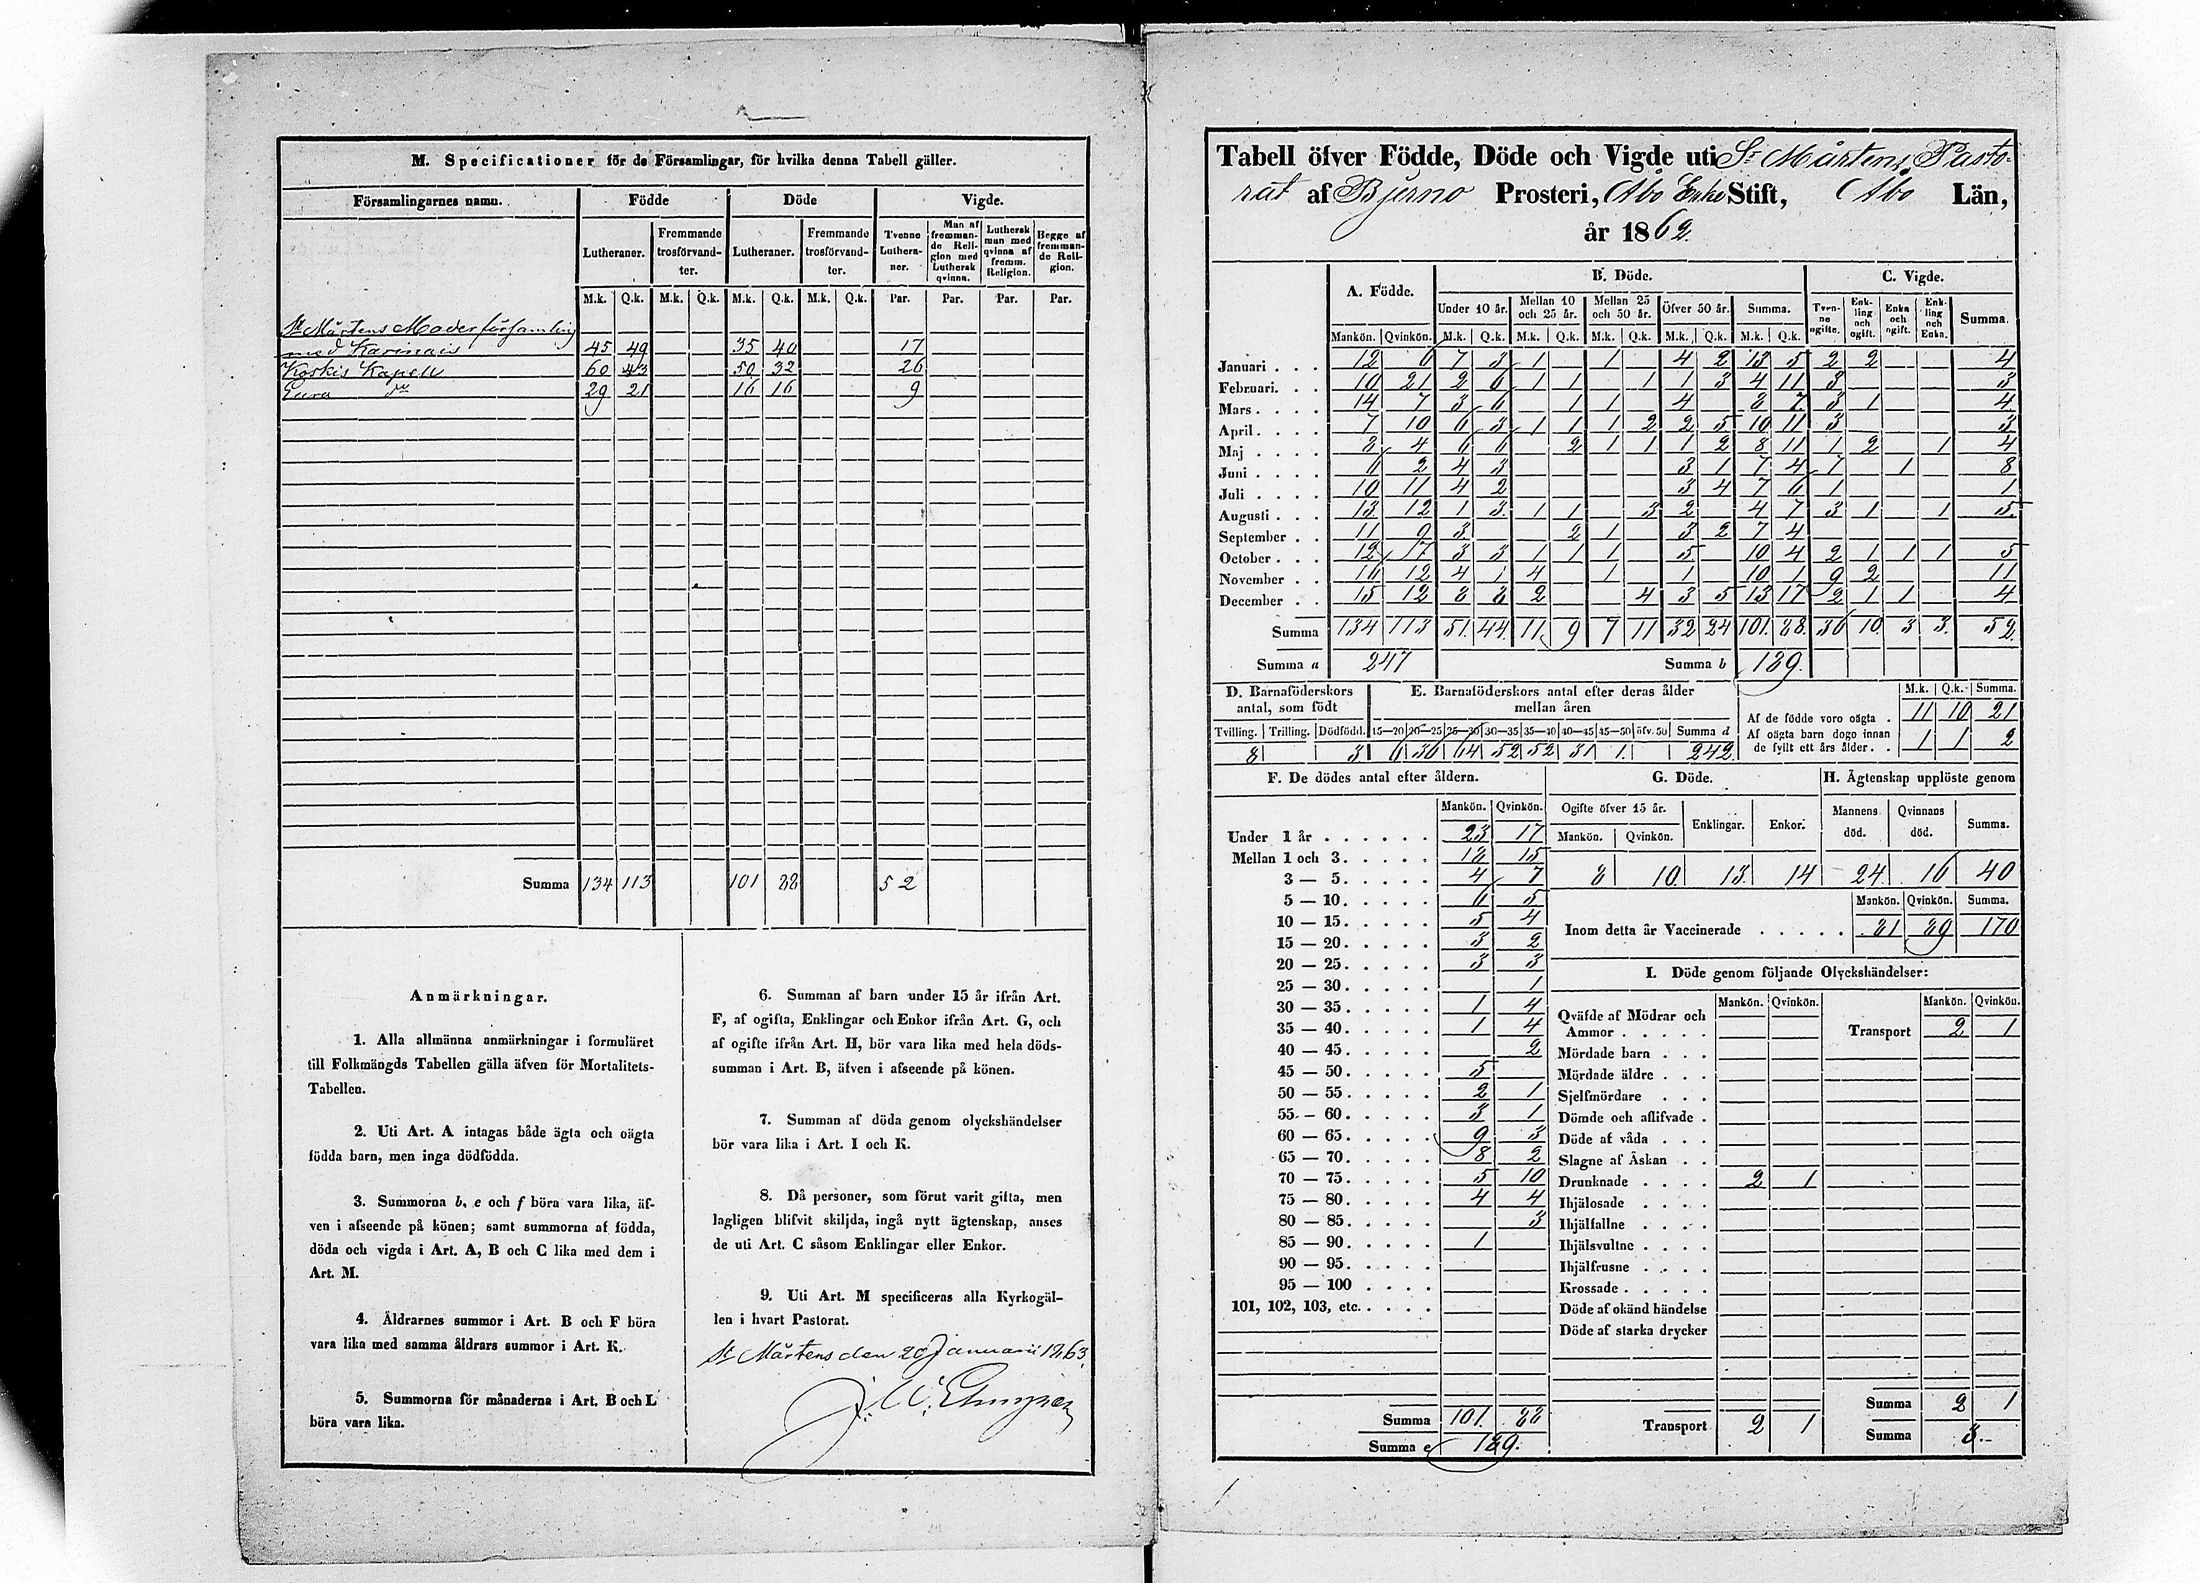 M. Specificationer för de Församlingar, för hvilka denna Tabell gäller.
Församlingarnes namn. Födde Döde Vigde.
Lutheraner. Fremmande trosförvandter. Lutheraner. Fremmande trosförvandter. Tvenne Lutheraner. Man af fremmande Religion med Luthersk qvinna. Luthersk man med qvinna af fremm. Religion. Begge af fremmande Religion.
M.k. Q.k. M.k. Q.k. M.k. Q.k. M.k. Q.k. Par. Par. Par. Par.
St Mårtens Moderförsamling
med Karinais 45 49 35 40 17
Koskis Kapell 60 43 50 32 26
Eura 29 21 16 16 9
Summa 134 113 101 88 52
Anmärkningar.
1. Alla allmänna anmärkningar i formuläret
till Folkmängds Tabellen gälla äfven för Mortalitets-
Tabellen.
2. Uti Art. A intagas både ägta och oägta
födda barn, men inga dödfödda.
3. Summorna b, e och f böra vara lika, äf-
ven i afseende på könen; samt summorna af födda,
döda och vigda i Art. A, B och C lika med dem i
Art. M.
4. Äldrarnes summor i Art. B och F böra
vara lika med samma åldrars summor i Art. K.
5. Summorna för månaderna i Art. B och L
böra vara lika.
6. Summan af barn under 15 år ifrån Art.
F, af ogifta, Enklingar och Enkor ifrån Art. G, och
af ogifte ifrån Art. H, bör vara lika med hela döds-
summan i Art. B, äfven i afseende på könen.
7. Summan af döda genom olyckshändelser
bör vara lika i Art. I och K.
8. Då personer, som förut varit gifta, men
lagligen blifvit skiljda, ingå nytt ägtenskap, anses
de uti Art. C såsom Enklingar eller Enkor.
9. Uti Art. M specificeras alla Kyrkogäl-
len i hvart Pastorat.
St Mårtens den 20 Januarii 1863.
Tabell öfver Födde, Döde och Vigde uti St Mårtens Pasto-
rat af Bjerno Prosteri, Åbo Erke Stift, Åbo Län,
år 1862.
A. Födde. B. Döde. C. Vigde.
Under 10 år. Mellan 10 och 25 år. Mellan 25 och 50 år. Öfver 50 år. Summa. Tvenne ogifte. Enkling och ogift. Enka och ogift. Enkling och Enka. Summa.
Mankön. Qvinkön. M.k. Q.k. M.k. Q.k. M.k. Q.k. M.k. Q.k. M.k. Q.k.
Januari 12 6 7 3 1 1 4 2 13 5 2 2 4
Februari. 10 21 2 6 1 1 1 1 3 4 11 3 3
Mars 14 7 3 6 1 1 4 8 7 3 1 4
April 7 10 6 3 1 1 1 2 2 5 10 11 3 3
Maj 8 4 6 6 2 1 1 1 2 8 11 1 2 1 4
Juni 6 2 4 3 3 1 7 4 7 1 8
Juli 10 11 4 2 3 4 7 6 1 1
Augusti 13 12 1 3 1 1 3 2 4 7 3 1 1 5
September 11 9 3 2 1 3 2 7 4
October 12 17 3 3 1 1 1 5 10 4 2 1 1 1 5
November 16 12 4 1 4 1 1 10 1 9 2 11
December 15 12 8 8 2 4 3 5 13 17 2 1 1 4
Summa 134 113 51 44 11 9 7 11 32 24 101 88 36 10 3 3 52
Summa a 247 Summa b 189.
D. Barnaföderskors antal, som födt E. Barnaföderskors antal efter deras ålder mellan åren M.k. Q.k. Summa.
Tvilling. Trilling. Dödfödd. 15—20 20—25 25—30 30—35 35—40 40—45 45—50 öfv. 50 Summa d
8 3 6 36 64 52 52 31 1 242
Af de födde voro oägta 11 10 21
Af oägta barn dogo innan de fyllt ett års ålder. 1 1 2
F. De dödes antal efter åldern. G. Döde. H. Ägtenskap upplöste genom
Mankön. Qvinkön. Ogifte öfver 15 år. Mankön. Qvinkön. Enklingar. Enkor. Mannens död. Qvinnans död. Summa.
8 10 13 14 24 16 40
Mankön. Qvinkön. Summa.
Inom detta år Vaccinerade 81 89 170
Under 1 år 23 17
Mellan 1 och 3. 18 15
3 — 5. 4 7
5 — 10. 6 5
10 — 15. 5 4
15 — 20. 3 2
20 — 25. 3 3
25 — 30. 1
30 — 35. 1 4
35 — 40. 1 4
40 — 45. 2
45 — 50. 5
50 — 55. 2 1
55 — 60. 3 1
60 — 65. 9 3
65 — 70. 8 2
70 — 75. 5 10
75 — 80. 4 4
80 — 85. 3
85 — 90. 1
90 — 95.
95 — 100
101, 102, 103, etc.
Summa 101 88
Summa e 189.
I. Döde genom följande Olyckshändelser:
Mankön. Qvinkön. Mankön. Qvinkön.
Qväfde af Mödrar och Ammor Transport 2 1
Mördade barn
Mördade äldre
Sjelfmördare
Dömde och aflifvade
Döde af våda
Slagne af Åskan
Drunknade 2 1
Ihjälosade
Ihjälfallne
Ihjälsvultne
Ihjälfrusne
Krossade
Döde af okänd händelse
Döde af starka drycker
Summa 2 1
Transport 2 1 Summa 3.